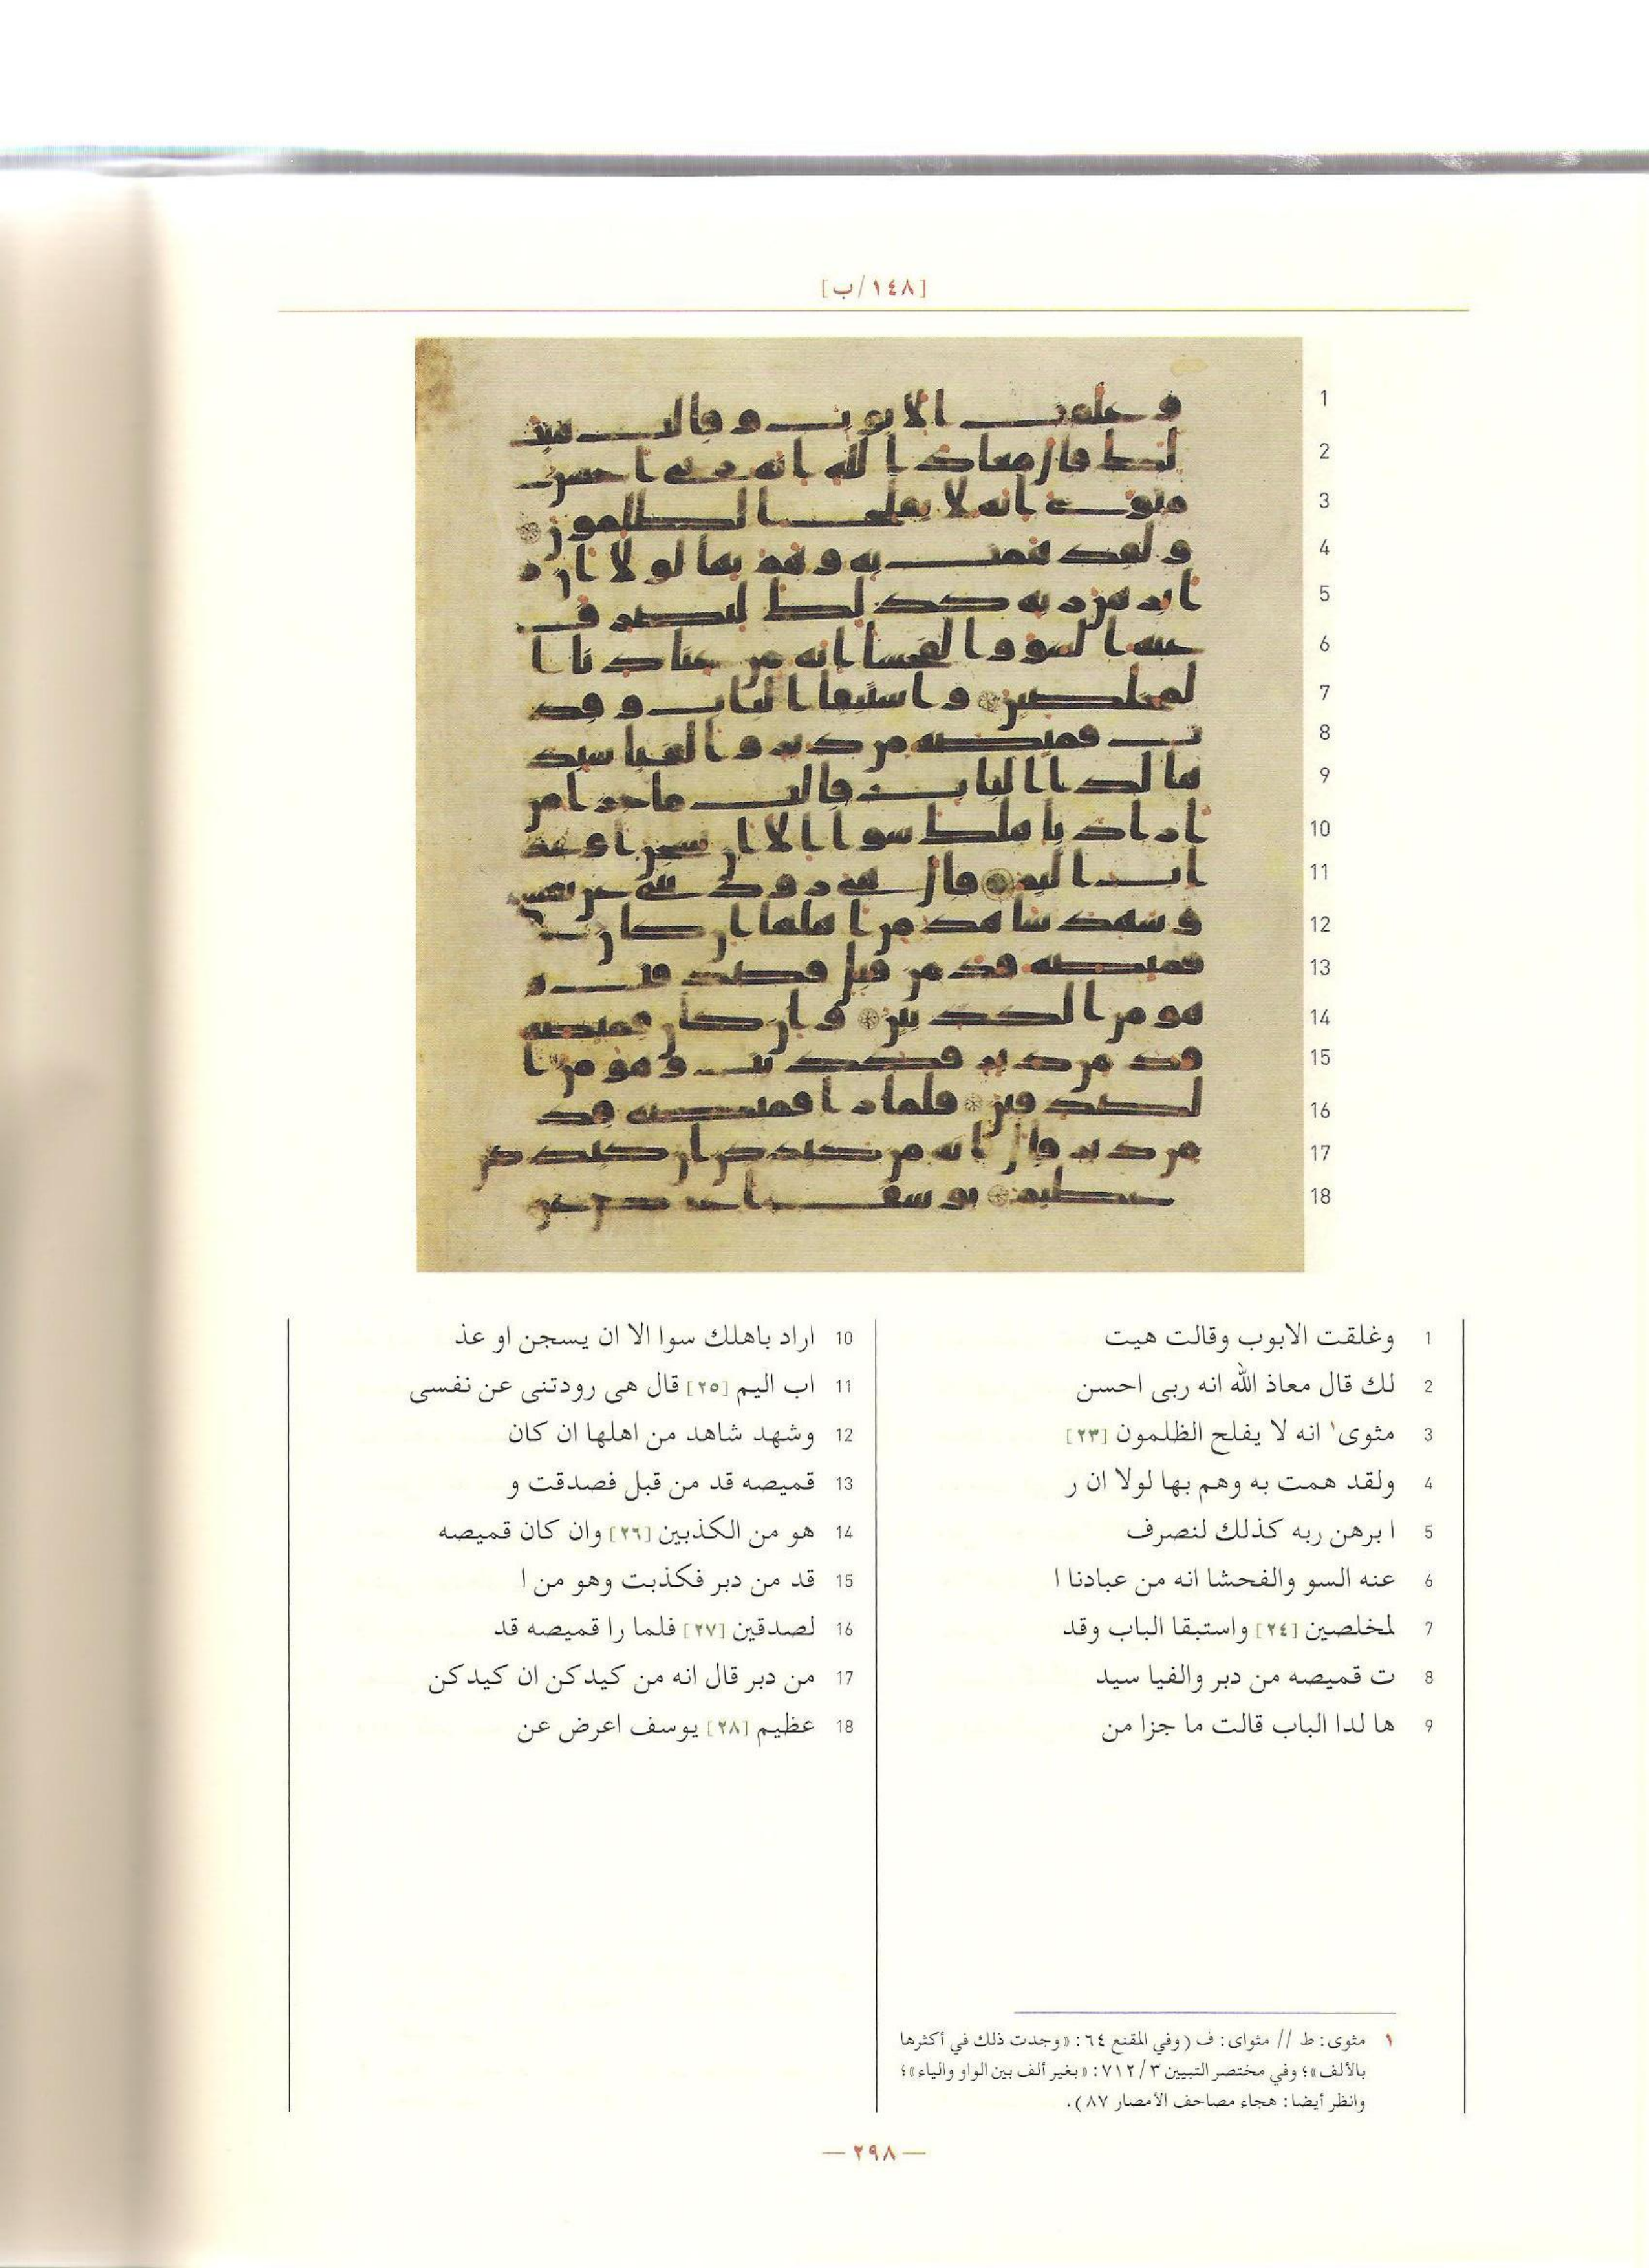 [١٤٨/ب]
1 وغلقت الابوب وقالت هيت
2 لك قال معاذ الله انه ربى احسن
3 مثوى١ انه لا يفلح الظلمون [٢٣]
4 ولقد همت به وهم بها لولا ان ر
5 ا برهن ربه كذلك لنصرف
6 عنه السو والفحشا انه من عبادنا ا
7 لمخلصين [٢٤] واستبقا الباب وقد
8 ت قميصه من دبر والفيا سيد
9 ها لدا الباب قالت ما جزا من
10 اراد باهلك سوا الا ان يسجن او عذ
11 اب اليم [٢٥] قال هى رودتنى عن نفسى
12 وشهد شاهد من اهلها ان كان
13 قميصه قد من قبل فصدقت و
14 هو من الكذبين [٢٦] وان كان قميصه
15 قد من دبر فكذبت وهو من ا
16 لصدقين [٢٧] فلما را قميصه قد
17 من دبر قال انه من كيدكن ان كيدكن
18 عظيم [٢٨] يوسف اعرض عن
١ مثوى: ط // مثواى: ف (وفي المقنع ٦٤: «وجدت ذلك في أكثرها
بالألف»؛ وفي مختصر التبيين ٧١٢/٣: «بغير ألف بين الواو والياء»؛
وانظر أيضا: هجاء مصاحف الأمصار ٨٧).
— ٢٩٨ —